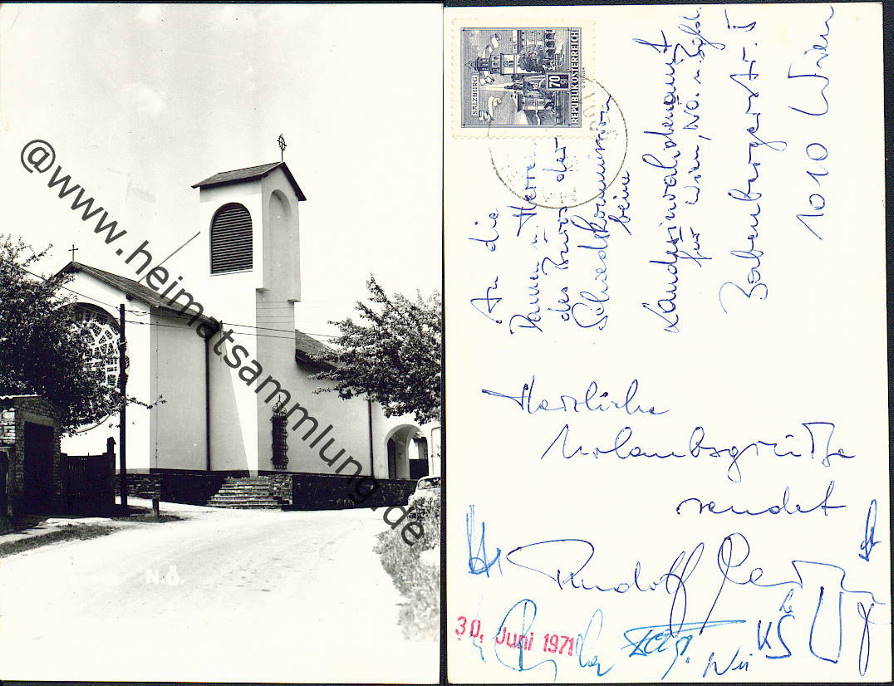 @www.heimatsammlung.de
N.Ö.
SALZBURG
70 g
REPUBLIK ÖSTERREICH
An die
Damen u. Herren
des Büros der
Schiedskommission
beim
Landesinvalidenamt
für Wien, NÖ. u. Bgld.
Babenbergerstr. 5
1010 Wien
Herzliche
Urlaubsgrüße
sendet
Rudolf
30. Juni 1971
KS